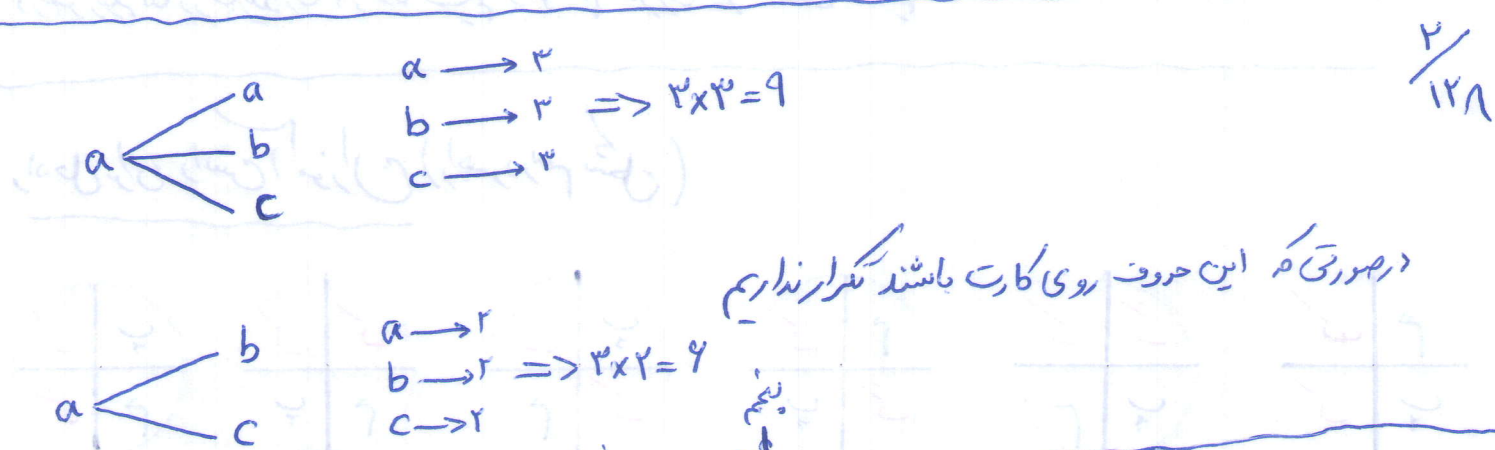 ۲/۱۲۸
a
a
b
c
a → ۳
b → ۳ => ۳×۳=۹
c → ۳
درصورتی که این حروف روی کارت باشند تکرار نداریم
a
b
c
a → ۲
b → ۲ => ۳×۲=۶
c → ۲
پنجم